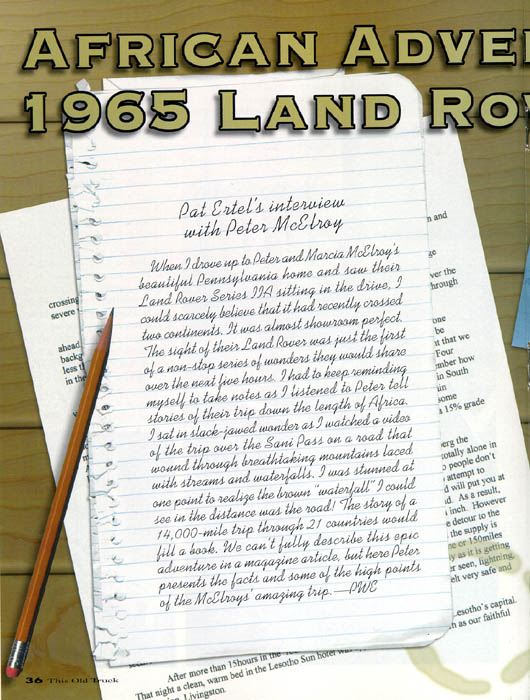 AFRICAN ADVE
1965 LAND RO
Pat Ertel's interview
with Peter McElroy
When I drove up to Peter and Marcia McElroy's
beautiful Pennsylvania home and saw their
Land Rover Series IIA sitting in the drive, I
could scarcely believe that it had recently crossed
two continents. It was almost showroom perfect.
The sight of their Land Rover was just the first
of a non-stop series of wonders they would share
over the next five hours. I had to keep reminding
myself to take notes as I listened to Peter tell
stories of their trip down the length of Africa.
I sat in slack-jawed wonder as I watched a video
of the trip over the Sani Pass on a road that
wound through breathtaking mountains laced
with streams and waterfalls. I was stunned at
one point to realize the brown "waterfall" I could
see in the distance was the road! The story of a
14,000-mile trip through 21 countries would
fill a book. We can't fully describe this epic
adventure in a magazine article, but here Peter
presents the facts and some of the high points
of the McElroys' amazing trip.—PWE
crossing
severe
ahead
backg
less t
in the
n and
ge
ver the
hrough
one
be
t that we
Four
mber how
in South
in
some
a 15% grade
berg the
totally alone in
o people don't
attempt to
d will put you at
d. As a result,
inch. However
e detour to the
the supply is
ne or 150miles
y as it is getting
r seen, lightning,
elt very safe and
Lesotho's capital.
h as our faithful
After more than 15hours in the
That night a clean, warm bed in the Lesotho Sun hotel was
Livingston
36 This Old Truck